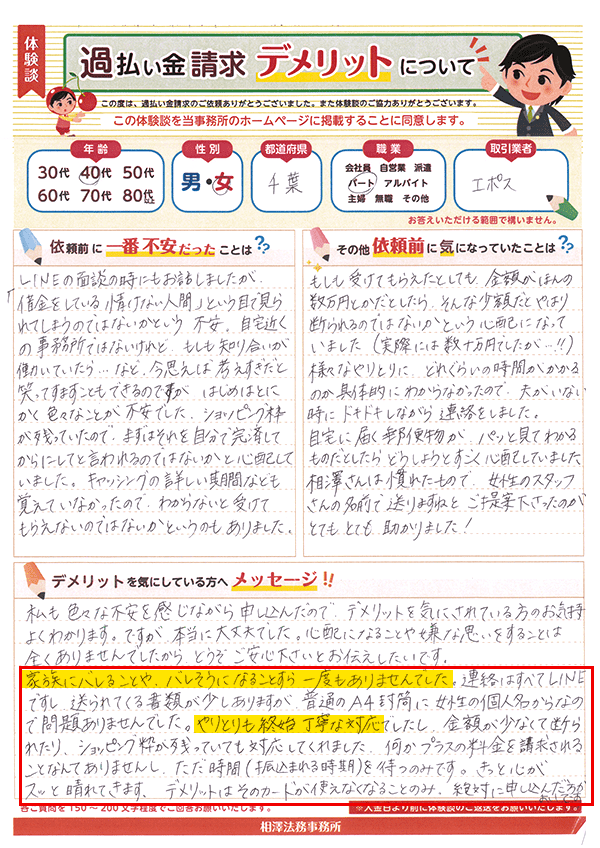 体験談
過払い金請求 デメリットについて
この度は、過払い金請求のご依頼ありがとうございました。また体験談のご協力ありがとうございます。
この体験談を当事務所のホームページに掲載することに同意します。
年齢
30代 40代 50代
60代 70代 80代以上
性別
男・女
都道府県
千葉
職業
会社員 自営業 派遣
パート アルバイト
主婦 無職 その他
取引業者
エポス
お答えいただける範囲で構いません。
依頼前に一番不安だったことは??
LINEの面談の時にもお話しましたが、
「借金をしている情けない人間」という目で見ら
れてしまうのではないかという不安。自宅近く
の事務所ではないけれど、もしも知り合いが
働いていたら…など、今思えば考えすぎだと
笑ってすますこともできるのですが はじめはとに
かく色々なことが不安でした。ショッピング枠
が残っていたので、まずはそれを自分で完済して
からにしてと言われるのではないかと心配して
いました。キャッシングの詳しい期間なども
覚えていなかったので、わからないと受けて
もらえないのではないかというのもありました。
その他依頼前に気になっていたことは??
もしも受けてもらえたとしても、金額がほんの
数万円とかだとしたら、そんな少額だとやはり
断られるのではないかという心配になって
いました(実際には数十万円でしたが…!!)
様々なやりとりに、どれぐらいの時間がかかる
のか具体的にわからなかったので、夫がいない
時にドキドキしながら連絡をしました。
自宅に届く郵便物が、パッと見てわかる
ものだとしたらどうしようとすごく心配していました。
相澤さんは慣れたもので、女性のスタッフ
さんの名前で送りますねとご提案下さったのが
とてもとても助かりました!
デメリットを気にしている方へメッセージ!!
私も色々な不安を感じながら申し込んだので、デメリットを気にされている方のお気持
よくわかります。ですが本当に大丈夫でした。心配になることや嫌な思いをすることは
全くありませんでしたから、どうぞご安心下さいとお伝えしたいです。
家族にバレることや、バレそうになることすら一度もありませんでした。連絡はすべてLINE
ですし、送られてくる書類が少しありますが、普通のA4封筒に女性の個人名からなの
で問題ありませんでした。やりとりも終始丁寧な対応でしたし、金額が少なくて断ら
れたり、ショッピング枠が残っていても対応してくれました。何かプラスの料金を請求される
ことなんてありませんし、ただ時間(振込まれる時期)を待つのみです。きっと心が
スッと晴れてきます。デメリットはそのカードが使えなくなることのみ、絶対に申し込んだ方が
各ご質問を150〜200文字程度でご回答お願いいたします。
※入金日より前に体験談のご返送をお願いいたします。
相澤法務事務所